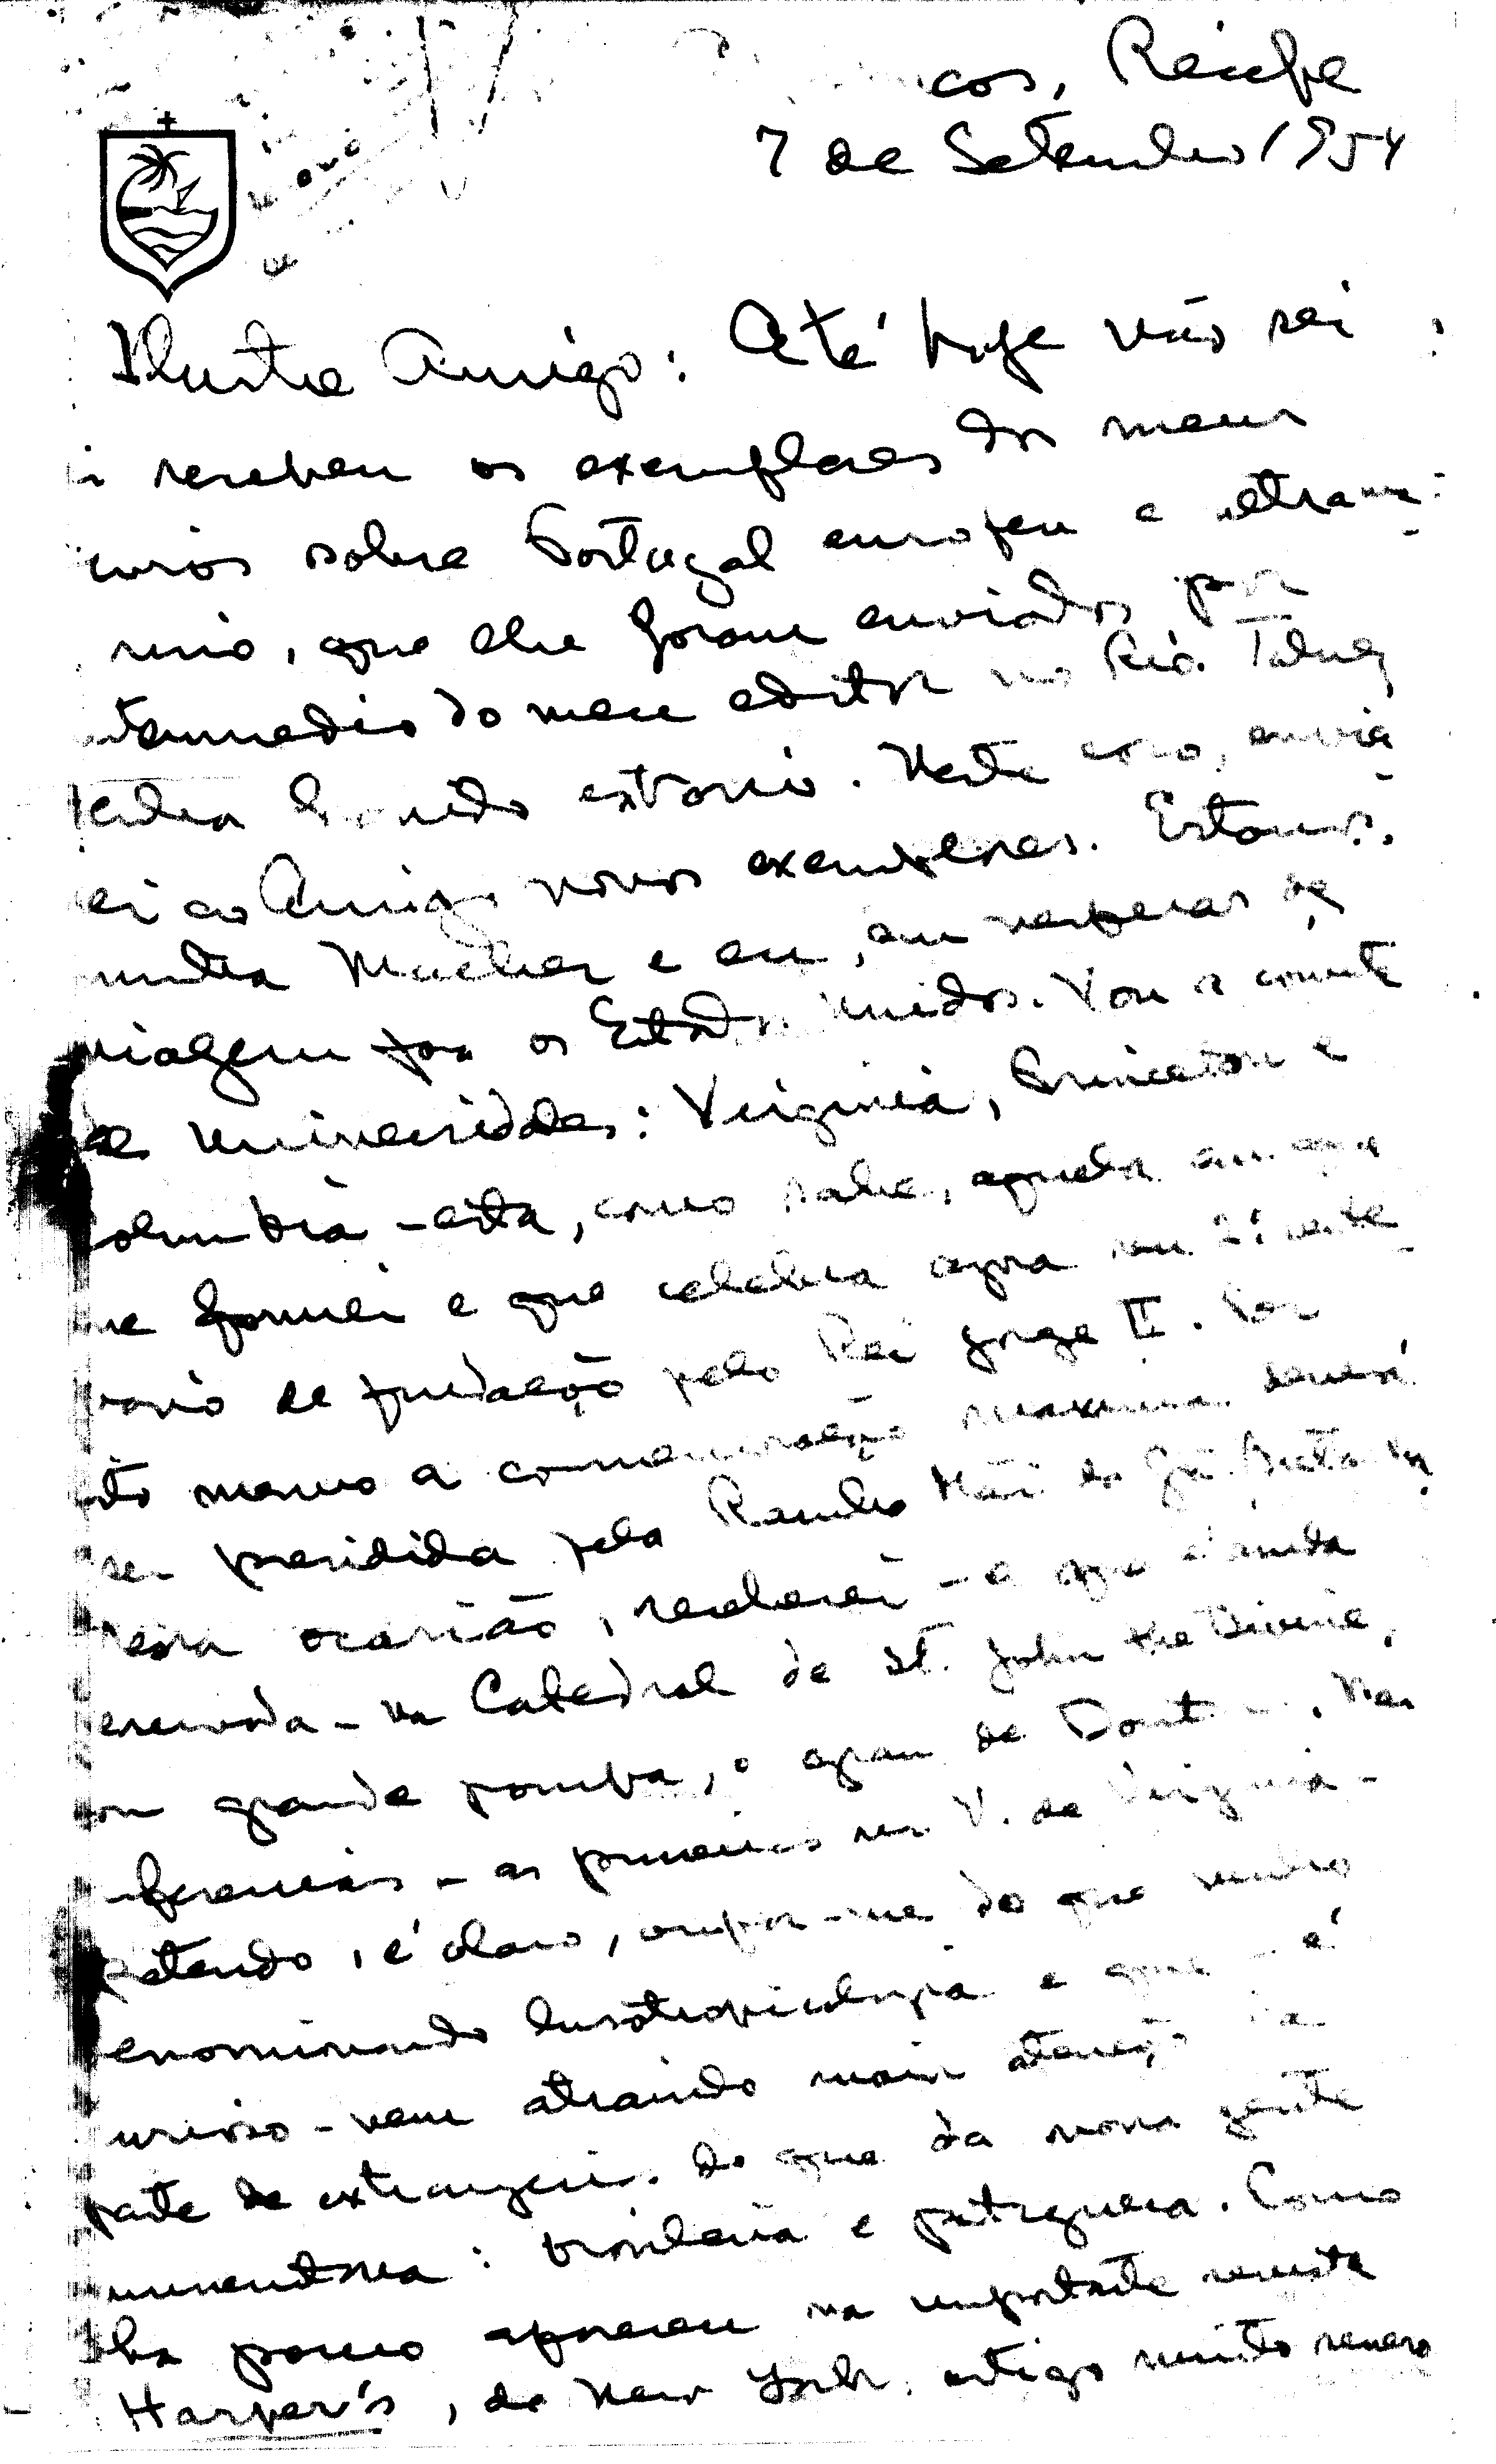 cos, Recife
7 de Setembro 1954
Ilustre Amigo: Até hoje não sei
recebeu os exemplares dos meus
livros sobre Portugal europeu e ultrama-
rino, que lhe foram enviados por
intermedio do meu editor no Rio. Talvez
tenham extravio. Neste caso, envia-
rei ao Amigo novos exemplares. Estamos,
minha Mulher e eu, em vesperas de
viagem para os Estados Unidos. Vou a convite
de Universidades: Virginia, Princeton e
Columbia - esta, como sabe, aquela em que
me formei e que celebra agora seu 2º cente-
nario de fundação pelo Rei Jorge II. Por
isto mesmo a comemoração maxima deverá
ser presidida pela Rainha Mãi da Grã-Bretanha
Nessa ocasião, receberei - e que é ainda
reservada - na Catedral de St. John the Divine,
com grande pompa, o grau de Nas
conferencias - as primeiras na U. de Virginia -
pretendo, é claro, ocupar-me do que venho
denominando lusotropicologia e que - é
curioso - vem atraindo mais atenção da
parte de extrangeiros do que da nossa gente
: brasileira e portuguesa. Como
ha pouco apareceu na importante revista
Harper's, de New York, artigo muito